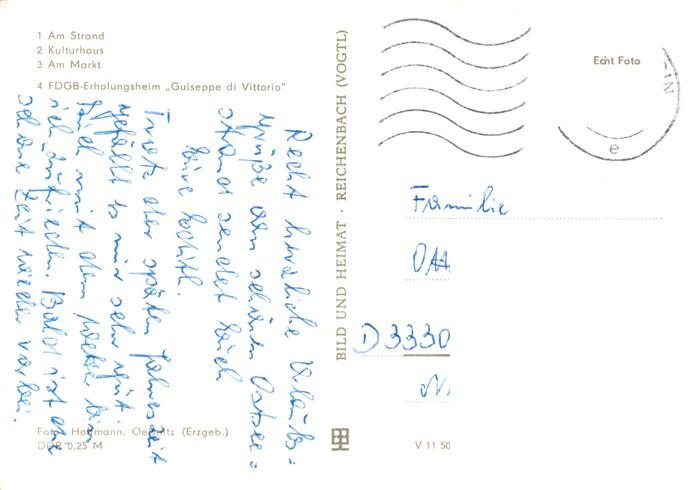 1 Am Strand
2 Kulturhaus
3 Am Markt
4 FDGB-Erholungsheim „Guiseppe di Vittorio"
Recht herzliche Urlaubs=
grüße vom schönen Ostsee=
strand sendet Euch
Eure
Trotz der späten Jahreszeit
gefällt es mir sehr gut.
Auch mit dem Wetter bin
ich zufrieden. Bald ist die
schöne Zeit wieder vorbei.
Foto: Hoffmann, Oelsnitz (Erzgeb.)
DDR 0,25 M
BILD UND HEIMAT · REICHENBACH (VOGTL)
V 11 50
Echt Foto
e
Familie
D 3330